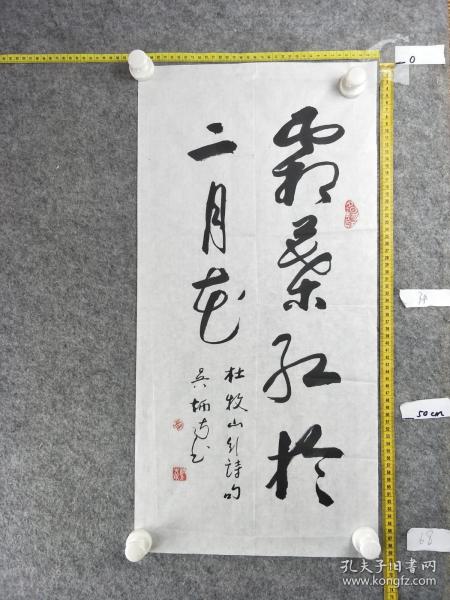 霜葉红於
二月花
杜牧山行詩句
吴炳南书
0
34
50cm
68
孔夫子旧书网
www.kongfz.com